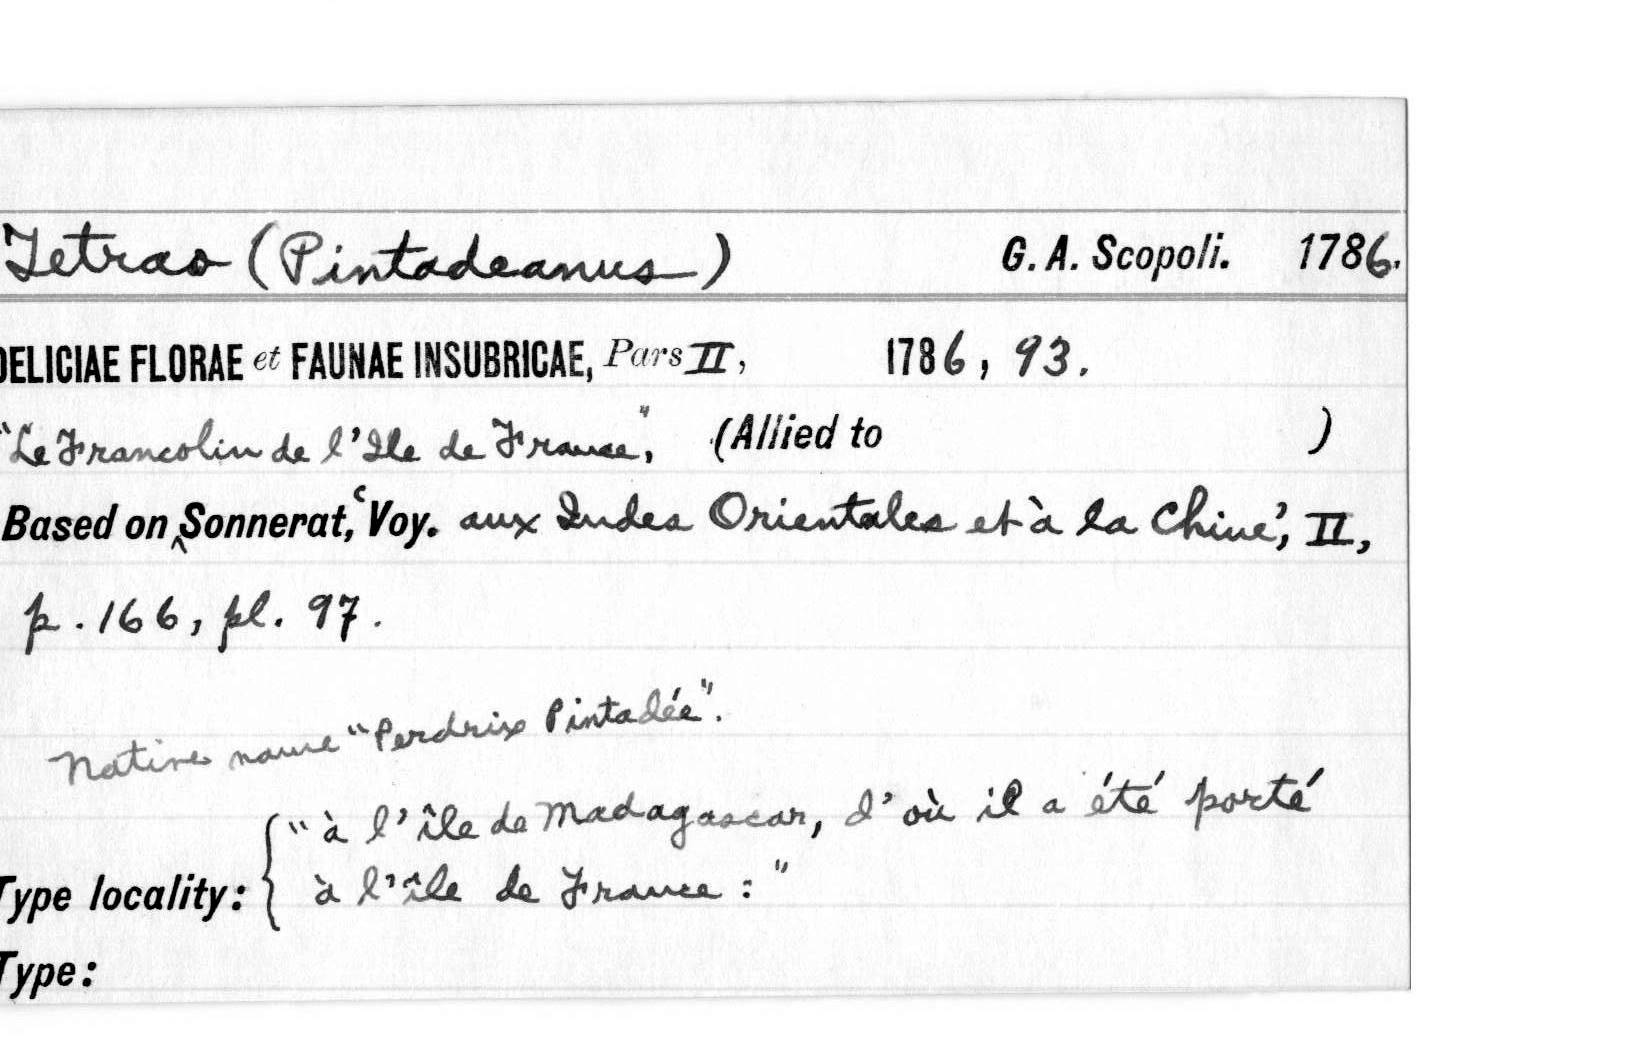 Tetrao (Pintadeanus) G. A. Scopoli. 1786.
DELICIAE FLORAE et FAUNAE INSUBRICAE, Pars II, 1786, 93.
"Le Francolin de l'Ile de France", (Allied to )
Based on ‸Sonnerat, 'Voy. aux Indes Orientales et à la Chine', II,
p. 166, pl. 97.
Native name "Perdrix Pintadée".
"à l'île de Madagascar, d'où il a été porté
Type locality: { à l'île de France:"
Type: